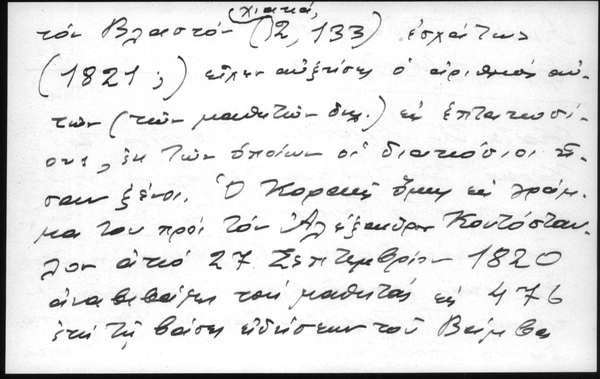 χιακά,
τὸν Βλαστὸν (2, 133) ἐσχάτως
(1821;) εἶχεν αὐξήσει ὁ ἀριθμὸς αὐ-
τῶν (τῶν μαθητῶν δηλ.) εἰς ἑπτακοσί-
ους, ἐκ τῶν ὁποίων οἱ διακόσιοι ἦ-
σαν ξένοι. Ὁ Κοραῆς ὅμως εἰς γράμ-
μα του πρὸς τὸν Ἀλέξανδρον Κοντόσταυ-
λον ἀπὸ 27 Σεπτεμβρίου 1820
ἀναβιβάζει τοὺς μαθητάς εἰς 476
ἐπὶ τῇ βάσει εἰδήσεων τοῦ Βάμβα